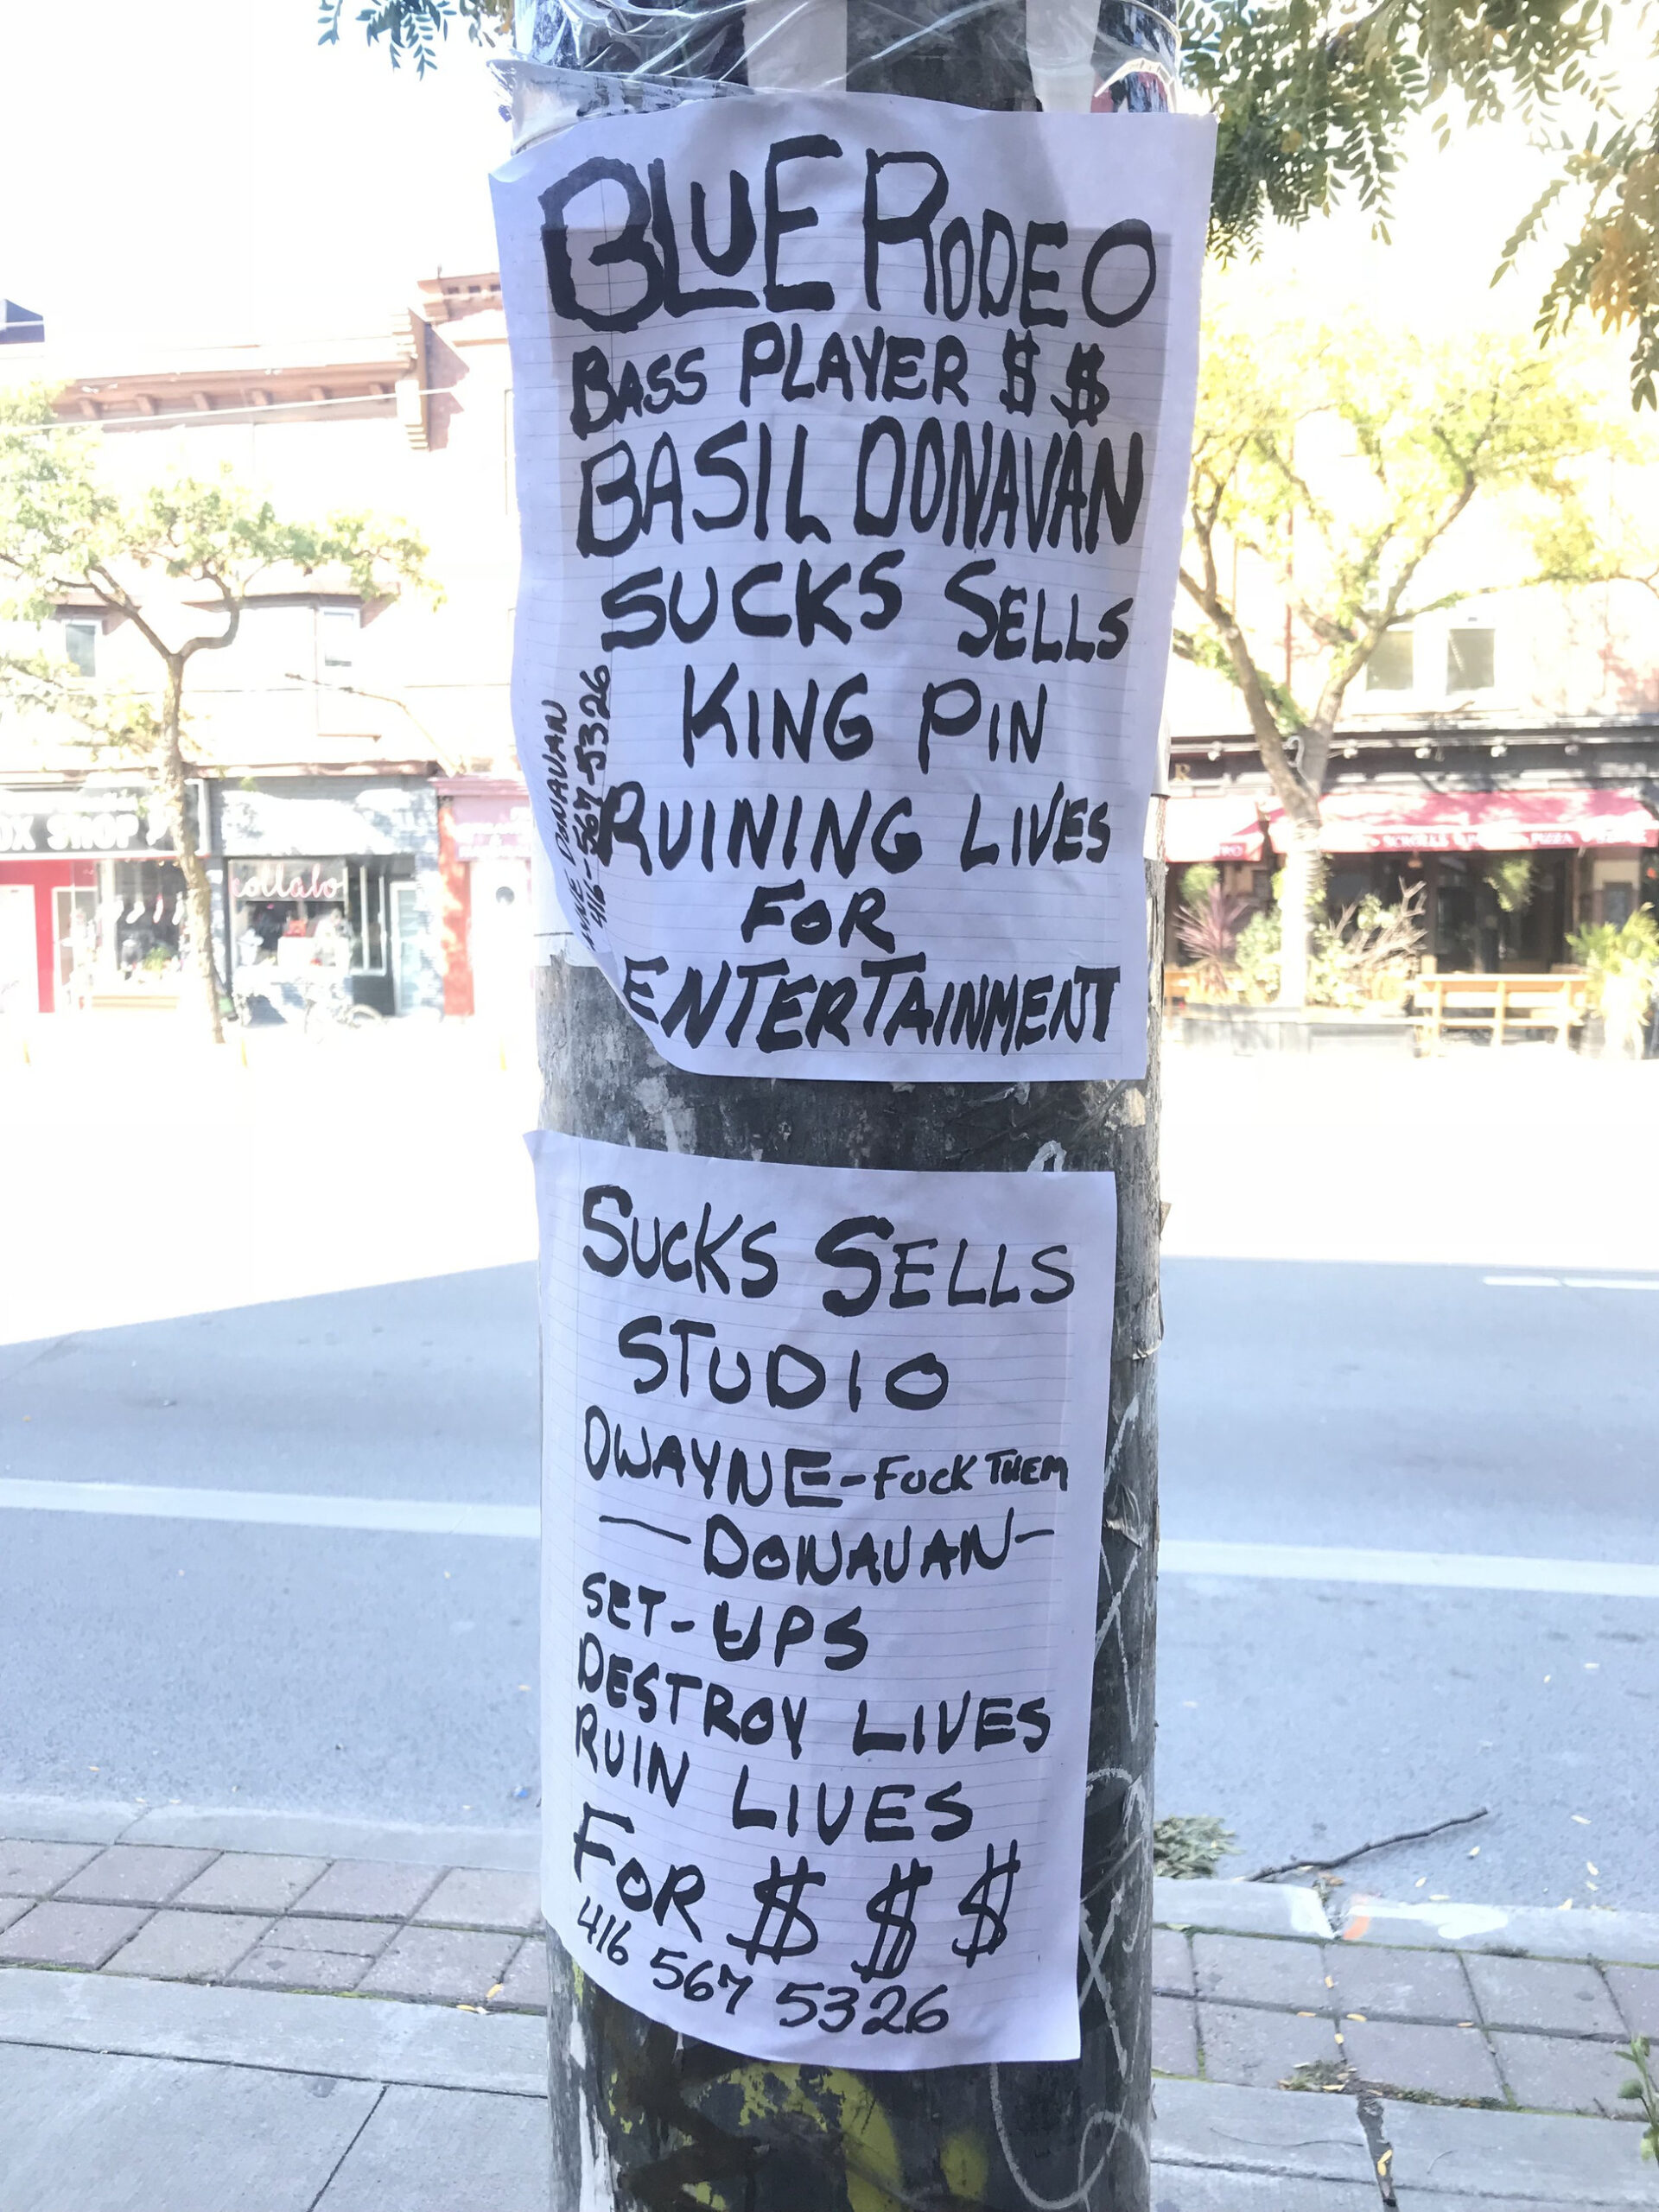 BLUE RODEO
BASS PLAYER $ $
BASIL DONAVAN
SUCKS SELLS
KING PIN
RUINING LIVES
FOR
ENTERTAINMENT
DONAVAN
416-567-5326
SUCKS SELLS
STUDIO
DWAYNE-FUCK THEM
—DONAVAN-
SET-UPS
DESTROY LIVES
RUIN LIVES
FOR $ $ $
416 567 5326
SHOP
collabo
PIZZA